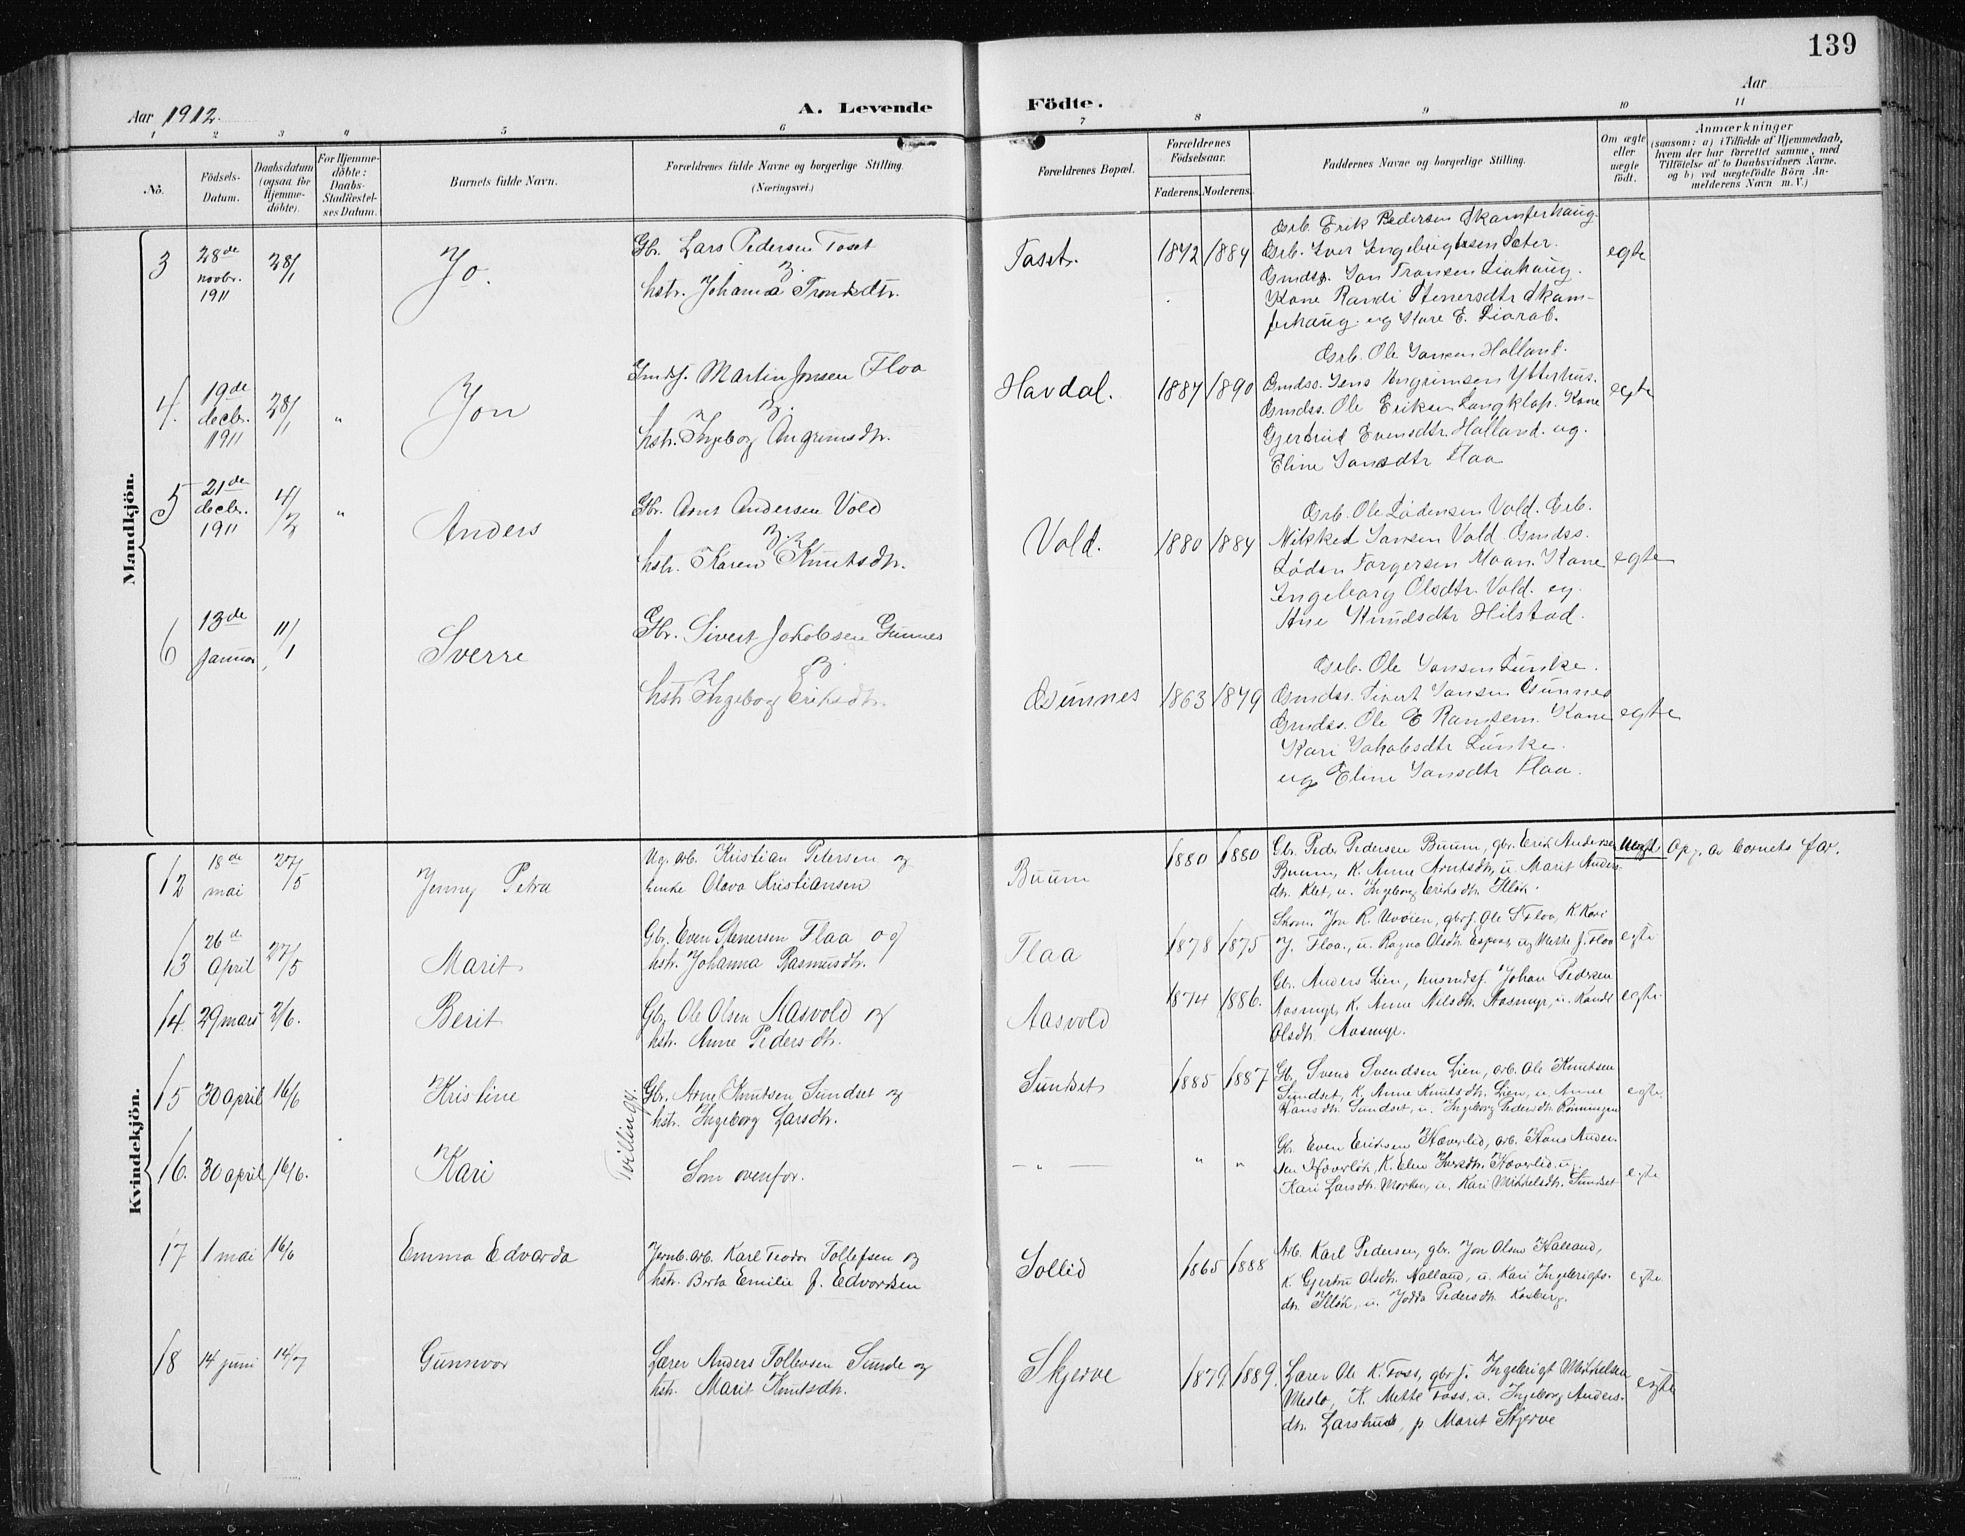 139
Aar 1912.
A. Levende
Födte.
Aar
1 2 3 4 5 6 7 8 9 10 11
No.
Födsels-
Datum.
Daabsdatum
(ogsaa for
Hjemme-
döbte).
For Hjemme-
döbte:
Daabs-
Stadfæstel-
ses Datum.
Barnets fulde Navn.
Forældrenes fulde Navne og borgerlige Stilling.
(Næringsvei.)
Forældrenes Bopæl.
Forældrenes
Födselsaar.
Faderens. Moderens.
Faddernes Navne og borgerlige Stilling.
Om ægte
eller
uægte
födt.
Anmærkninger
(saasom: a) i Tilfælde af Hjemmedaab,
hvem der har forrettet samme, med
Tilföielse af to Daabsvidners Navne,
og b) ved uægtefödte Börn An-
melderens Navn m. V.)
Mandkjön.
3
28de
novbr.
1911
28/1
Jo.
Gbr. Lars Pedersen Toset
hstr. Johanna Trondsdtr.
Toset.
1872 1884
Gsrb. Erik Pedersen Skamferhaug
Gsrb. Iver Ingebrigtsen Sæter.
Gmdss. Jon Transen Liahaug.
Kone Randi Stenersdtr Skam-
ferhaug og Mare E. Liarab.
egte
4.
19de
decbr.
1911
28/1
"
Jon
Gmdf. Martin Jonsen Floa
hstr. Ingeborg Angrimsdtr.
Havdal.
1887 1890
Gsrb. Ole Jansen Holland.
Gmdss. Jens Angrimsen Ytterhus.
Gmdss. Ole Eriksen Langklop. Kone
Gjertrud Evensdtr Holland. og.
Eline Jonsdtr Flaa
egte
5
21de
decbr.
1911
4/2
"
Anders
Gbr. Arnt Andersen Vold
hstr. Karen Knutsdtr.
Vold.
1880 1884
Gsrb. Ole Lødensen Vold. Gsrb.
Mikkel Jansen Vold. Gmdss.
Løden Torgersen Moan. Kone
Ingeborg Olsdtr. Vold. og.
Ane Knudsdtr Hilstad.
egte
6
13de
Januar
11/1
Sverre
Gbr. Sivert Jakobsen Gunnes
hstr Ingeborg Eriksdtr.
Gunnes
1863 1879
Gsrb. Ole Jonsen Lunke.
Gmdss. Sivert Jansen Gunnes
Gmdss. Ole E Ramsem. Kone
Kari Jakobsdtr Lunke.
og Eline Jonsdtr Flaa.
egte
Kvindekjön.
12
18de
mai
27/5
Jenny Petra
Ug. arb. Kristian Petersen og
Enke Olava Kristiansen
Buum
1880 1880
Gbr. Peder Pedersen Buum, gbr. Erik Andersen
Buum, K. Anne Arntsdtr, u. Marit Anders-
dtr. Klet, u. Ingeborg Eriksdtr. Fløk.
Uegt
Opg. av barnets far.
13
26d
April
27/5
Marit
Gbr. Even Stenersen Flaa og
hstr. Johanna Rasmusdtr.
Flaa
1878 1875
Skom. Jon R. Uvoien, gbrf. Ole S Floa, K. Kari
J. Floa, u. Ragna Olsdtr. Espaas, ug Marte J. Floa
egte
14
29 mars
2/6.
Berit
Gbr. Ole Olsen Aasvold og
hstr. Anne Pedersdtr.
Aasvold
1874 1886.
Gbr. Anders Lien, husmdsf. Johan Pedersen
Aasmyr, K. Anne Nilsdtr. Aasmyr, u. Randi
Olsdtr. Aasmyr.
egte
15
30 april
16/6
Kristine
Tvillinger.
Gbr. Arne Knutsen Sundset og
hstr. Ingeborg Larsdtr.
Sundset
1885 1887
Gbr. Svend Svendsen Lien, arb. Ole Knutsen
Sundset, K. Anne Knutsdtr. Lien, u. Anne
Hansdtr. Sundset, u. Ingeborg Pedersdtr. Rönningen
egte.
16.
30 april
16/6.
Kari
Som ovenfor.
— " —
" "
Gbr. Even Eriksen Hæverlid, arb. Hans Ander-
sen Hæverlök, K. Elen Iversdtr. Hæverlid, u.
Kari Larsdtr. Morken, u. Kari Mikkelsdtr. Sundset
egte
17
1 mai
16/6
Emma Edvarda
Jernb. arb. Karl Teodor Tollefsen og
hstr. Berta Emilie f. Edvardsen
Sollid
1865 1888
Arb. Karl Pedersen, gbr. Jon Olsen Halland,
K. Gjertru Olsdtr. Halland, u. Kari Ingebrigts-
dtr. Fløk, u. Jodda Pedersdtr. Kasberg.
egte
18
14 juni
14/7
Gunnvor
Lærer Anders Tollevsen Sunde og
hstr. Marit Knutsdtr.
Skjerve
1879. 1889.
Lærer Ole K. Foss, gbrf. Ingebrigt Mikkelsen
Meslo, K. Mette Foss, u. Ingeborg Anders-
dtr. Larshus, p Marit Skjerve
egte